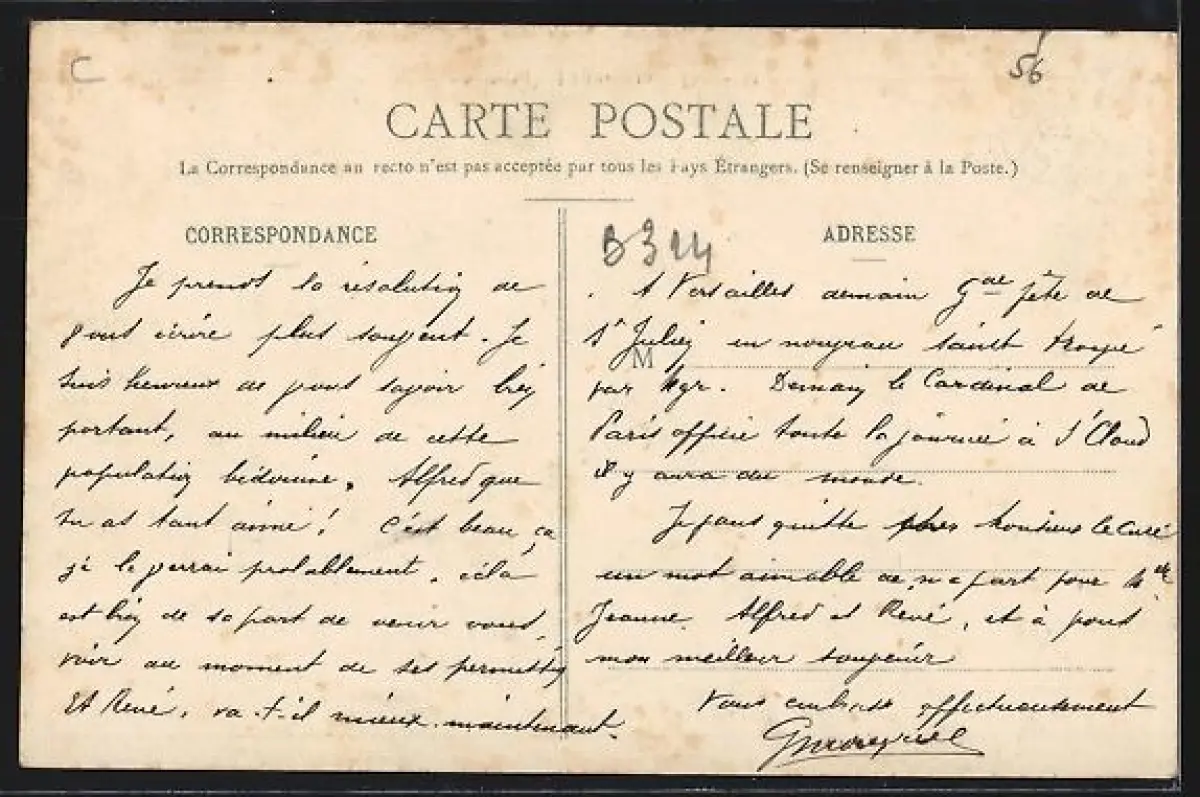 C
56
CARTE POSTALE
La Correspondance au recto n'est pas acceptée par tous les Pays Étrangers. (Se renseigner à la Poste.)
CORRESPONDANCE
ADRESSE
B324
M
Je prends la résolution de
vous écrire plus souvent. Je
suis heureux de vous savoir bien
portant, au milieu de cette
population bédouine. Alfred que
tu as tant aimé ! C'est beau, ça
je le verrai probablement. celà
est bien de sa part de venir vous
voir au moment de ses permettes
Et René, va-t-il mieux maintenant.
A Versailles demain Gde fête de
St Julien un nouveau saint
par Mgr. Demain le Cardinal de
Paris officie toute la journée à St Cloud
il y aura du monde.
Je vous quitte Monsieur le Curé
un mot aimable de ma part pour Melle
Jeanne. Alfred et René, et à vous
mon meilleur souvenir
Vous embrasse affectueusement